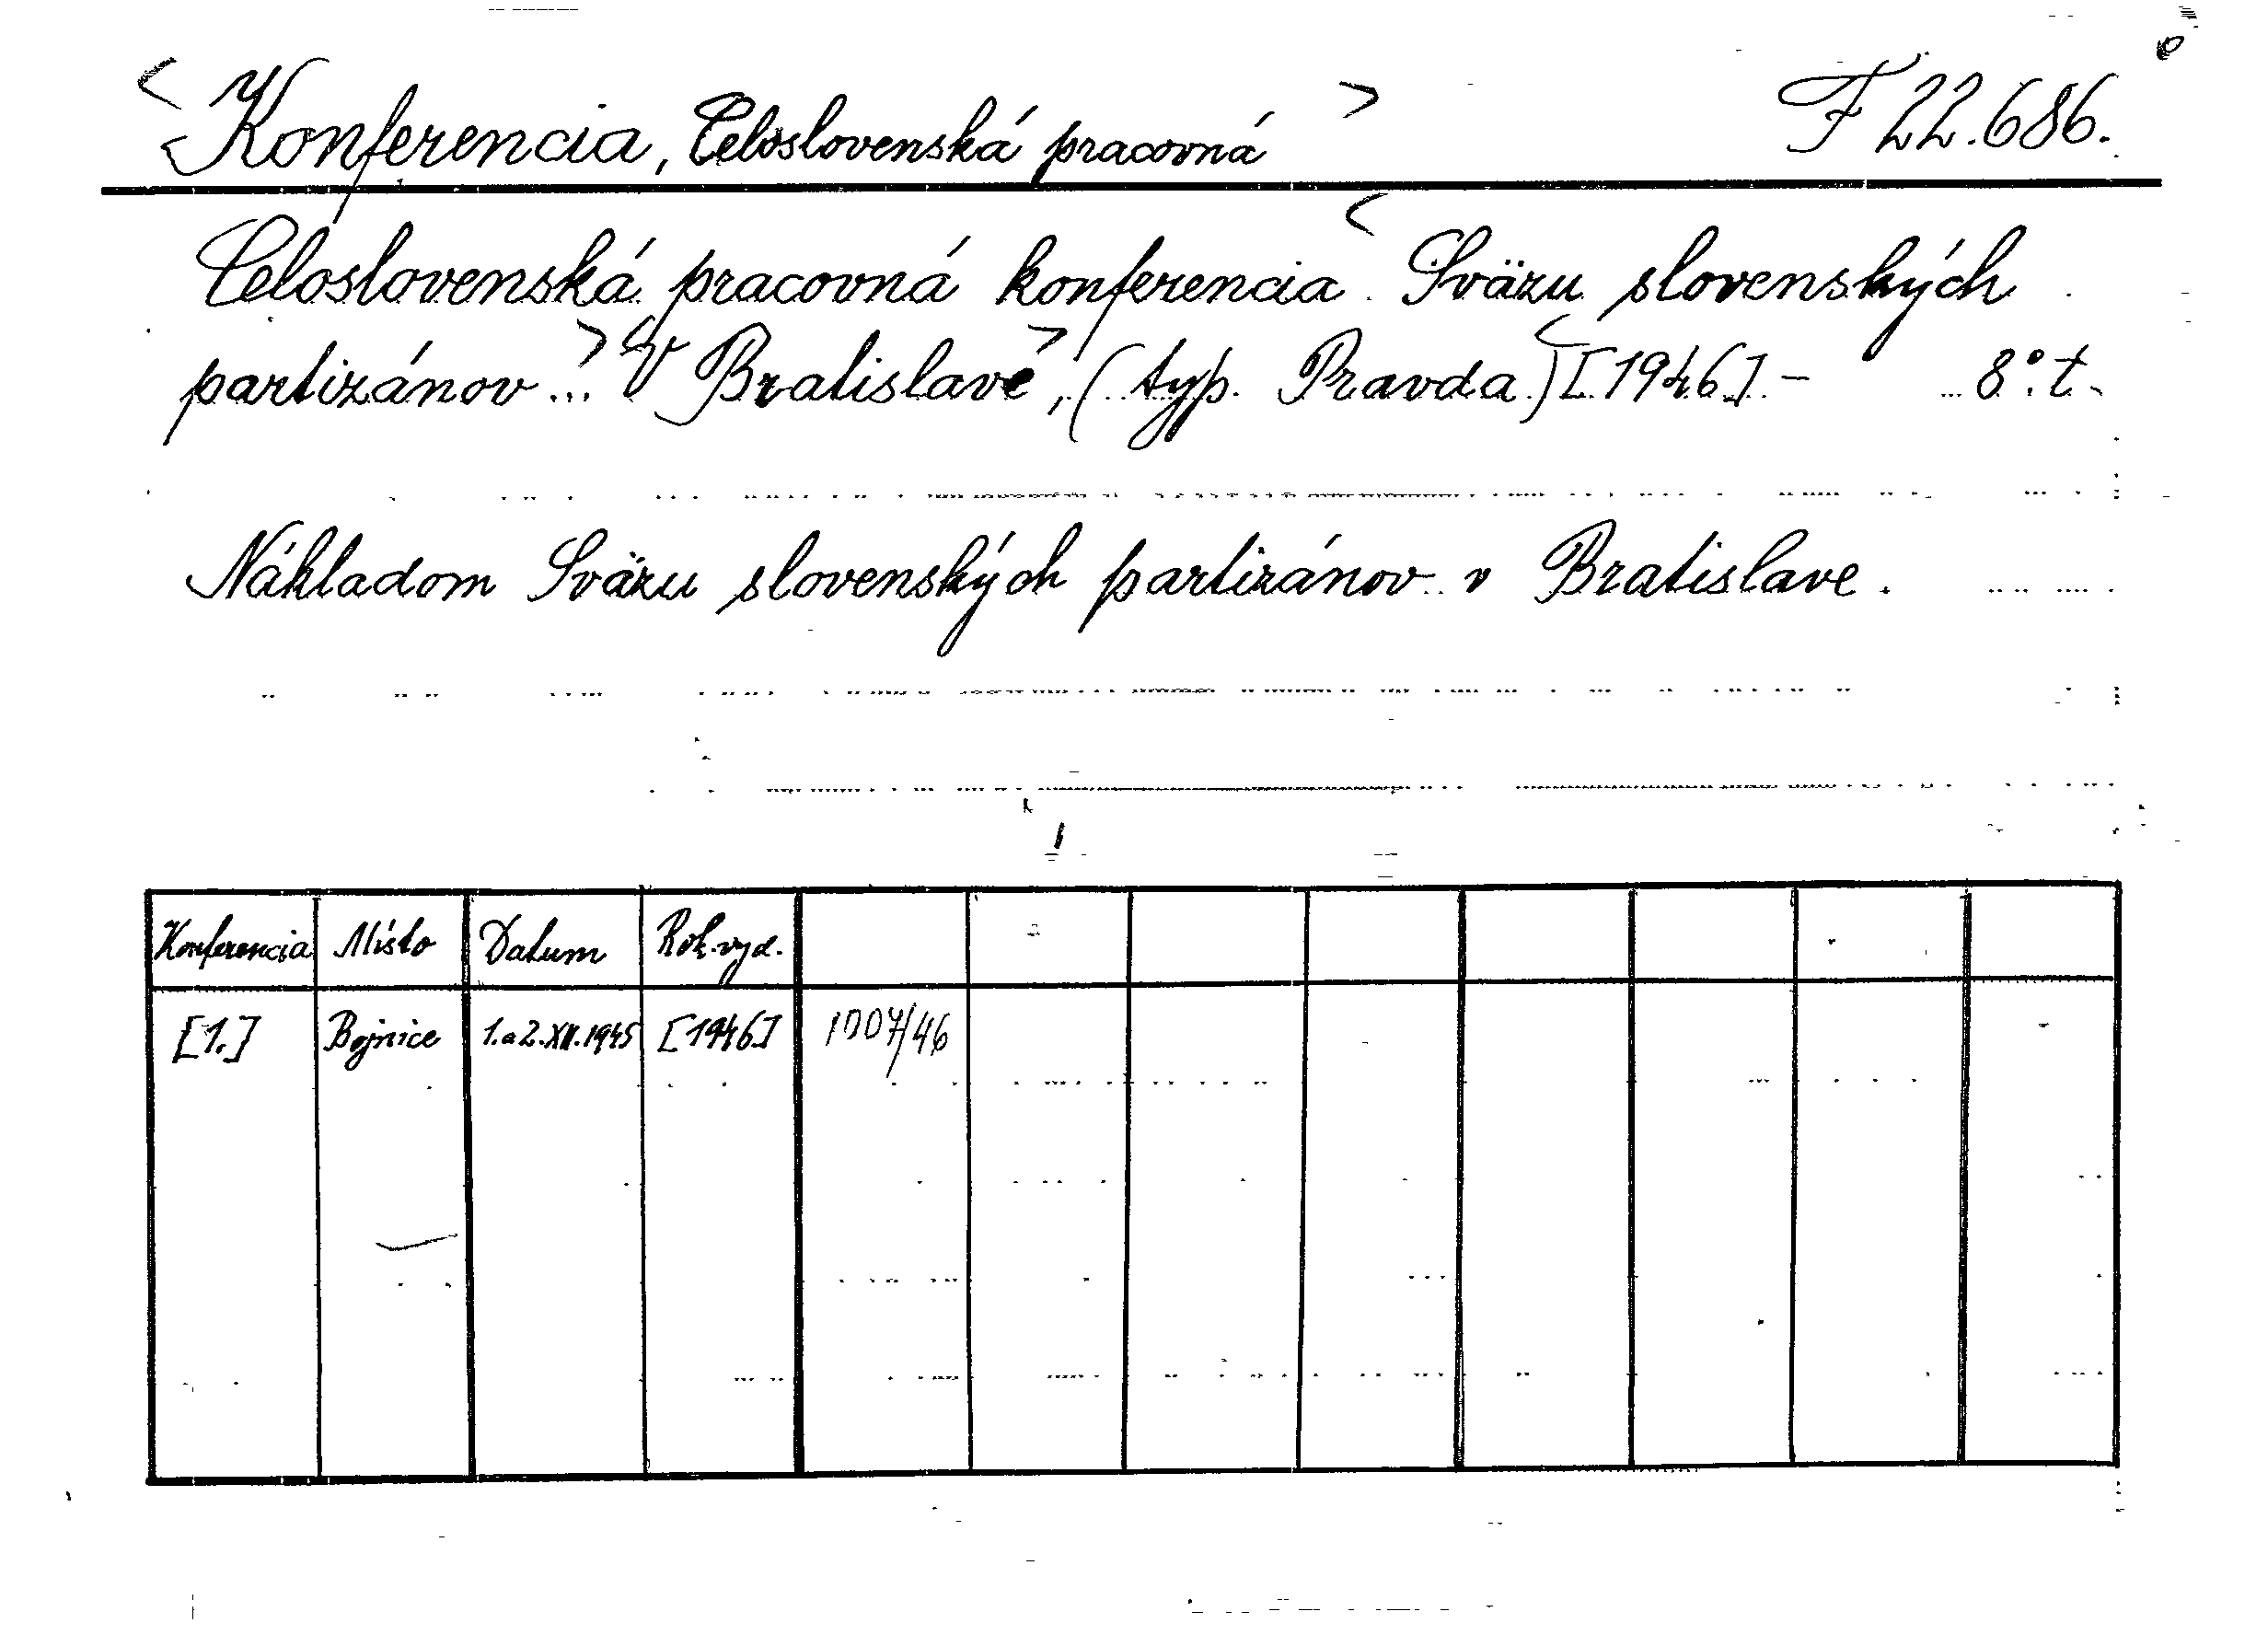 Konferencia, Celoslovenská pracovná F 22.686.
Celoslovenská pracovná konferencia Sväzu slovenských
partizánov... V Bratislave, (typ. Pravda) [1946] - 8°. t.
Nákladom Sväzu slovenských partizánov v Bratislave.
Konferencia Místo Datum Rok. vyd.
[1.] Bojnice 1. a 2. XII. 1945 [1946] 1007/46